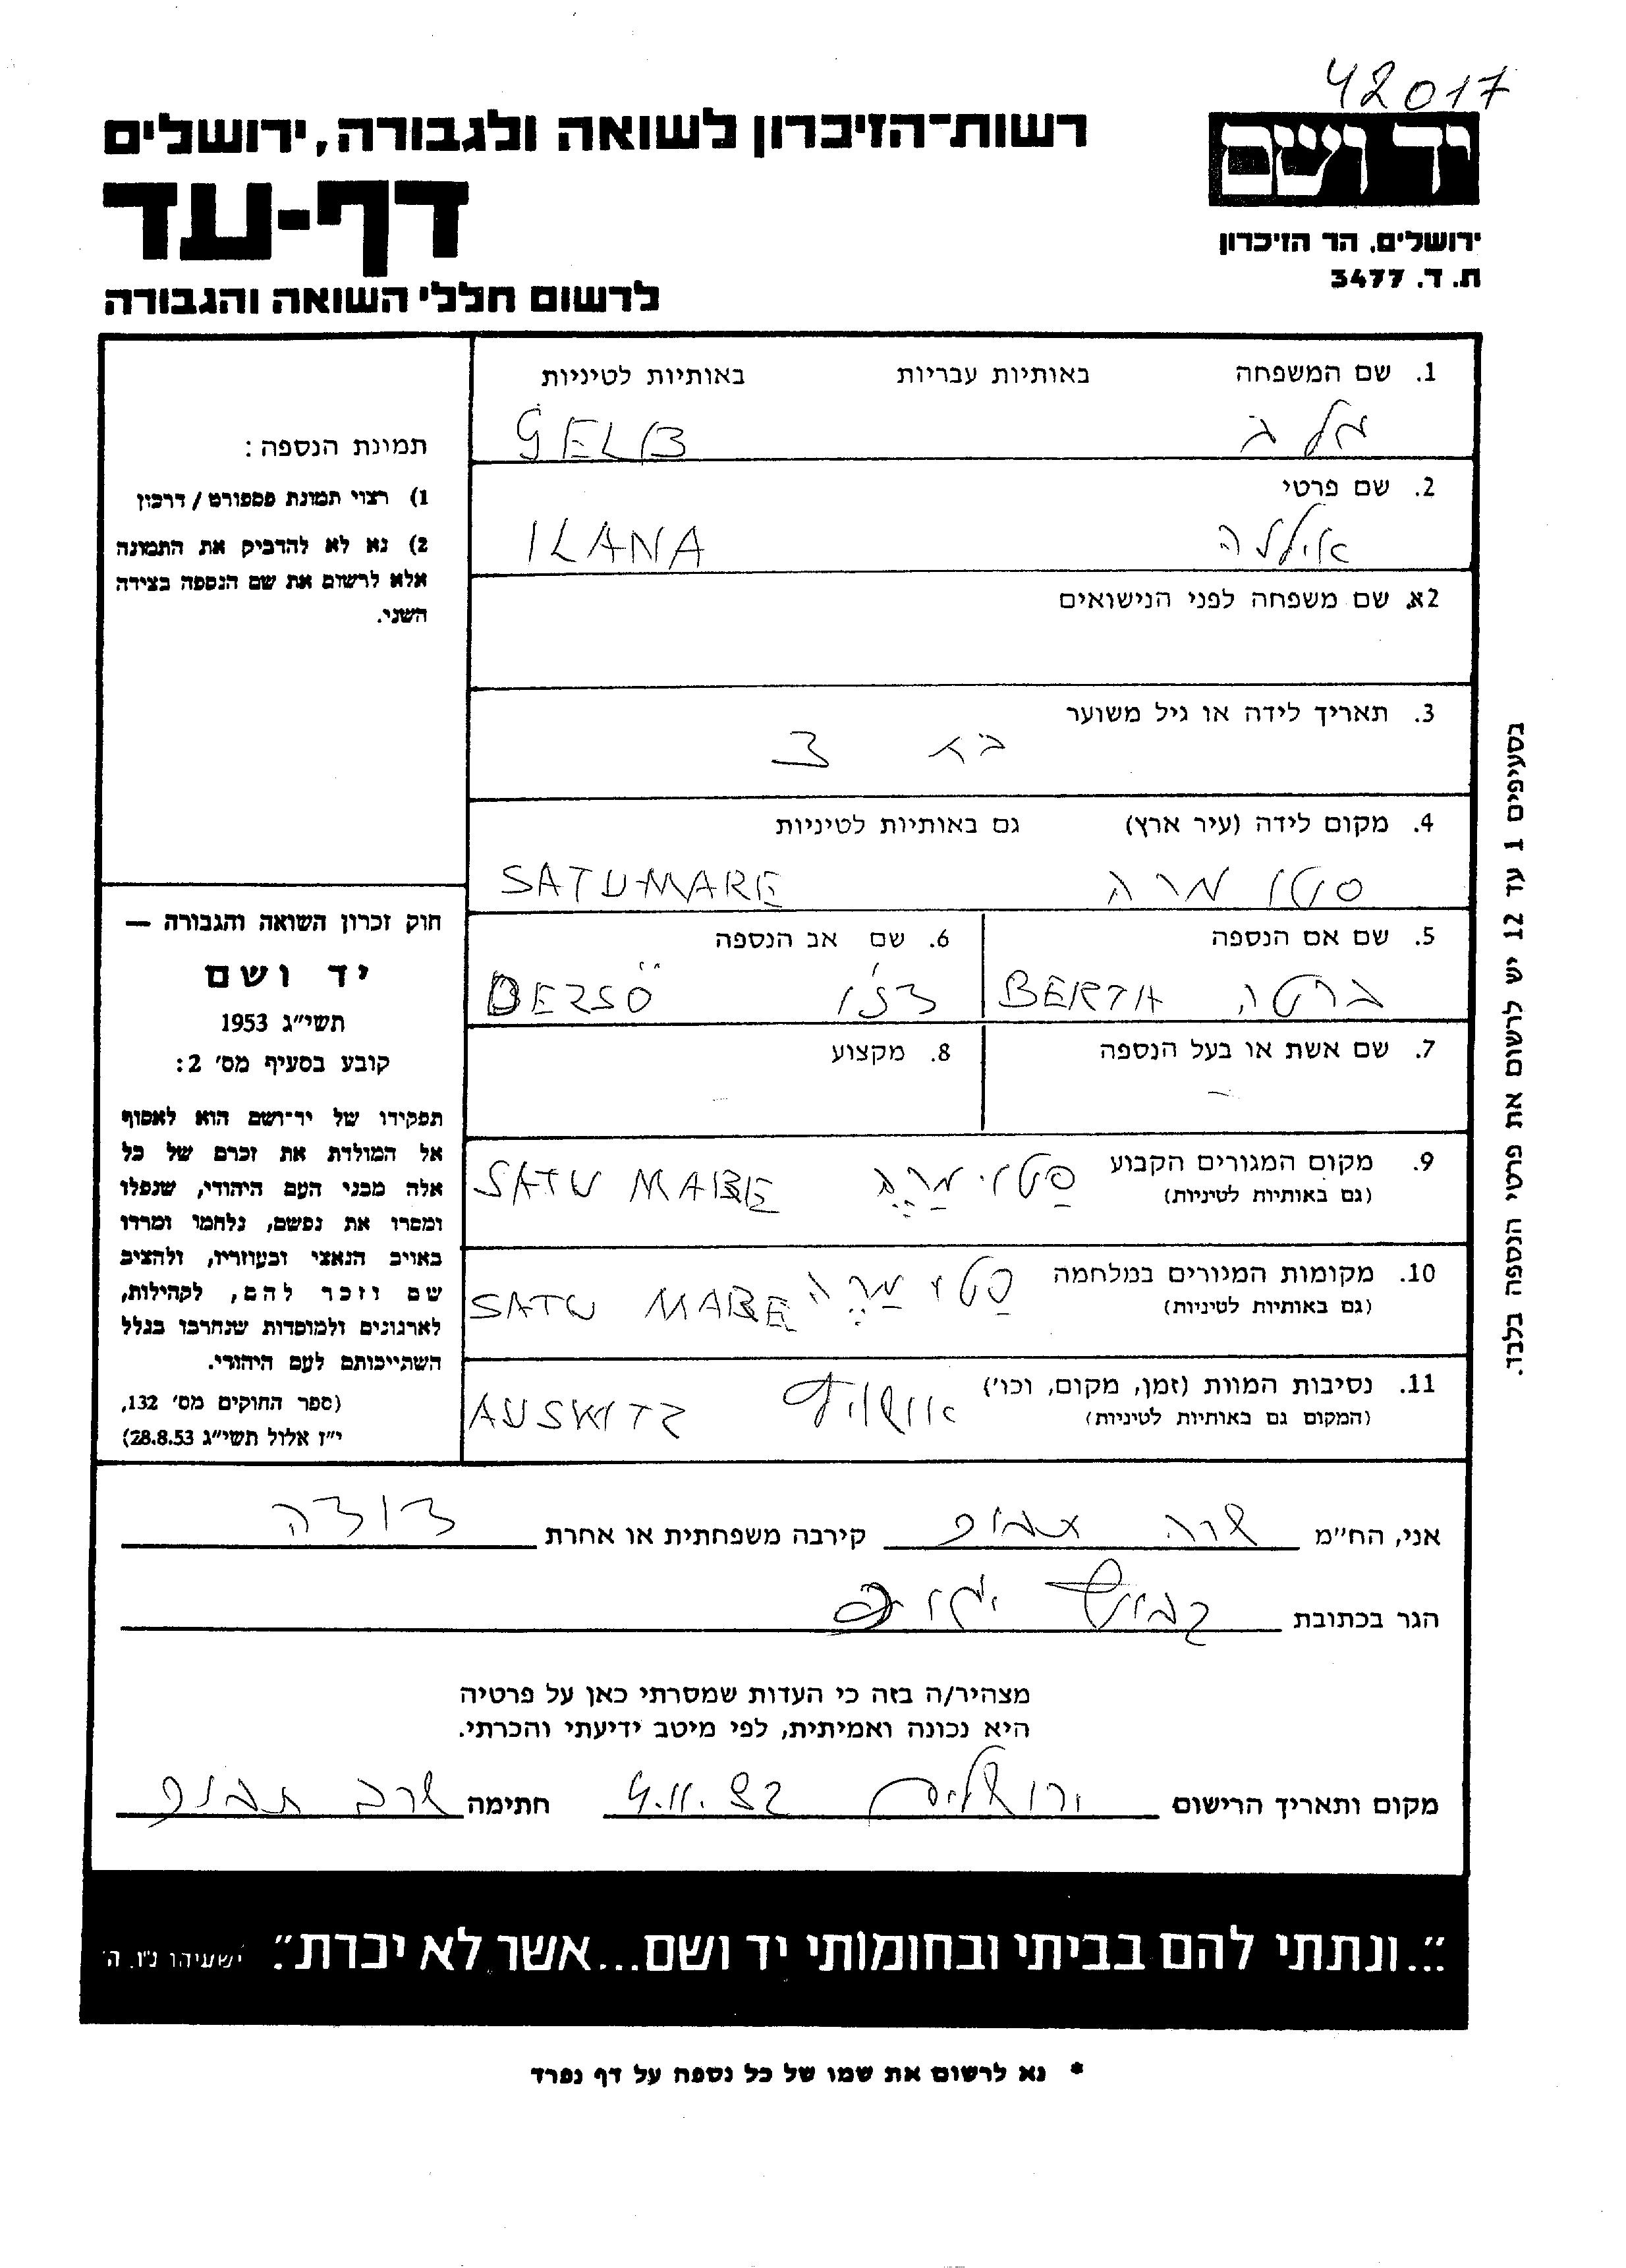 42017
יד ושם
רשות־הזיכרון לשואה ולגבורה, ירושלים
דף-עד
ירושלים, הר הזיכרון
ת. ד. 3477
לרשום חללי השואה והגבורה
1. שם המשפחה באותיות עבריות באותיות לטיניות
GELB
2. שם פרטי
ILANA
2א. שם משפחה לפני הנישואים
3. תאריך לידה או גיל משוער
4. מקום לידה (עיר ארץ) גם באותיות לטיניות
סטו מרה SATU-MARE
5. שם אם הנספה 6. שם אב הנספה
ברטה BERTA
7. שם אשת או בעל הנספה 8. מקצוע
9. מקום המגורים הקבוע
(גם באותיות לטיניות)
סטו מרה SATU MARE
10. מקומות המגורים במלחמה
(גם באותיות לטיניות)
סטו מרה SATU MARE
11. נסיבות המוות (זמן, מקום, וכו׳)
(המקום גם באותיות לטיניות)
אושוויץ AUSWITZ
תמונת הנספה:
1) רצוי תמונת פספורט / דרכון
2) נא לא להדביק את התמונה
אלא לרשום את שם הנספה בצידה
השני.
חוק זכרון השואה והגבורה —
יד ושם
תשי״ג 1953
קובע בסעיף מס׳ 2:
תפקידו של יד־ושם הוא לאסוף
אל המולדת את זכרם של כל
אלה מבני העם היהודי, שנפלו
ומסרו את נפשם, נלחמו ומרדו
באויב הנאצי ובעוזריו, ולהציב
שם וזכר להם, לקהילות,
לארגונים ולמוסדות שנחרבו בגלל
השתייכותם לעם היהודי.
(ספר החוקים מס׳ 132,
י״ז אלול תשי״ג 28.8.53)
בסעיפים 1 עד 12 יש לרשום את פרטי הנספה בלבד.
אני, הח״מ שרה קירבה משפחתית או אחרת דודה
הגר בכתובת
מצהיר/ה בזה כי העדות שמסרתי כאן על פרטיה
היא נכונה ואמיתית, לפי מיטב ידיעתי והכרתי.
מקום ותאריך הרישום ירושלים 9.11.92 חתימה שרה
"...ונתתי להם בביתי ובחומותי יד ושם...אשר לא יכרת". ישעיהו נ״ו, ה׳
* נא לרשום את שמו של כל נספה על דף נפרד